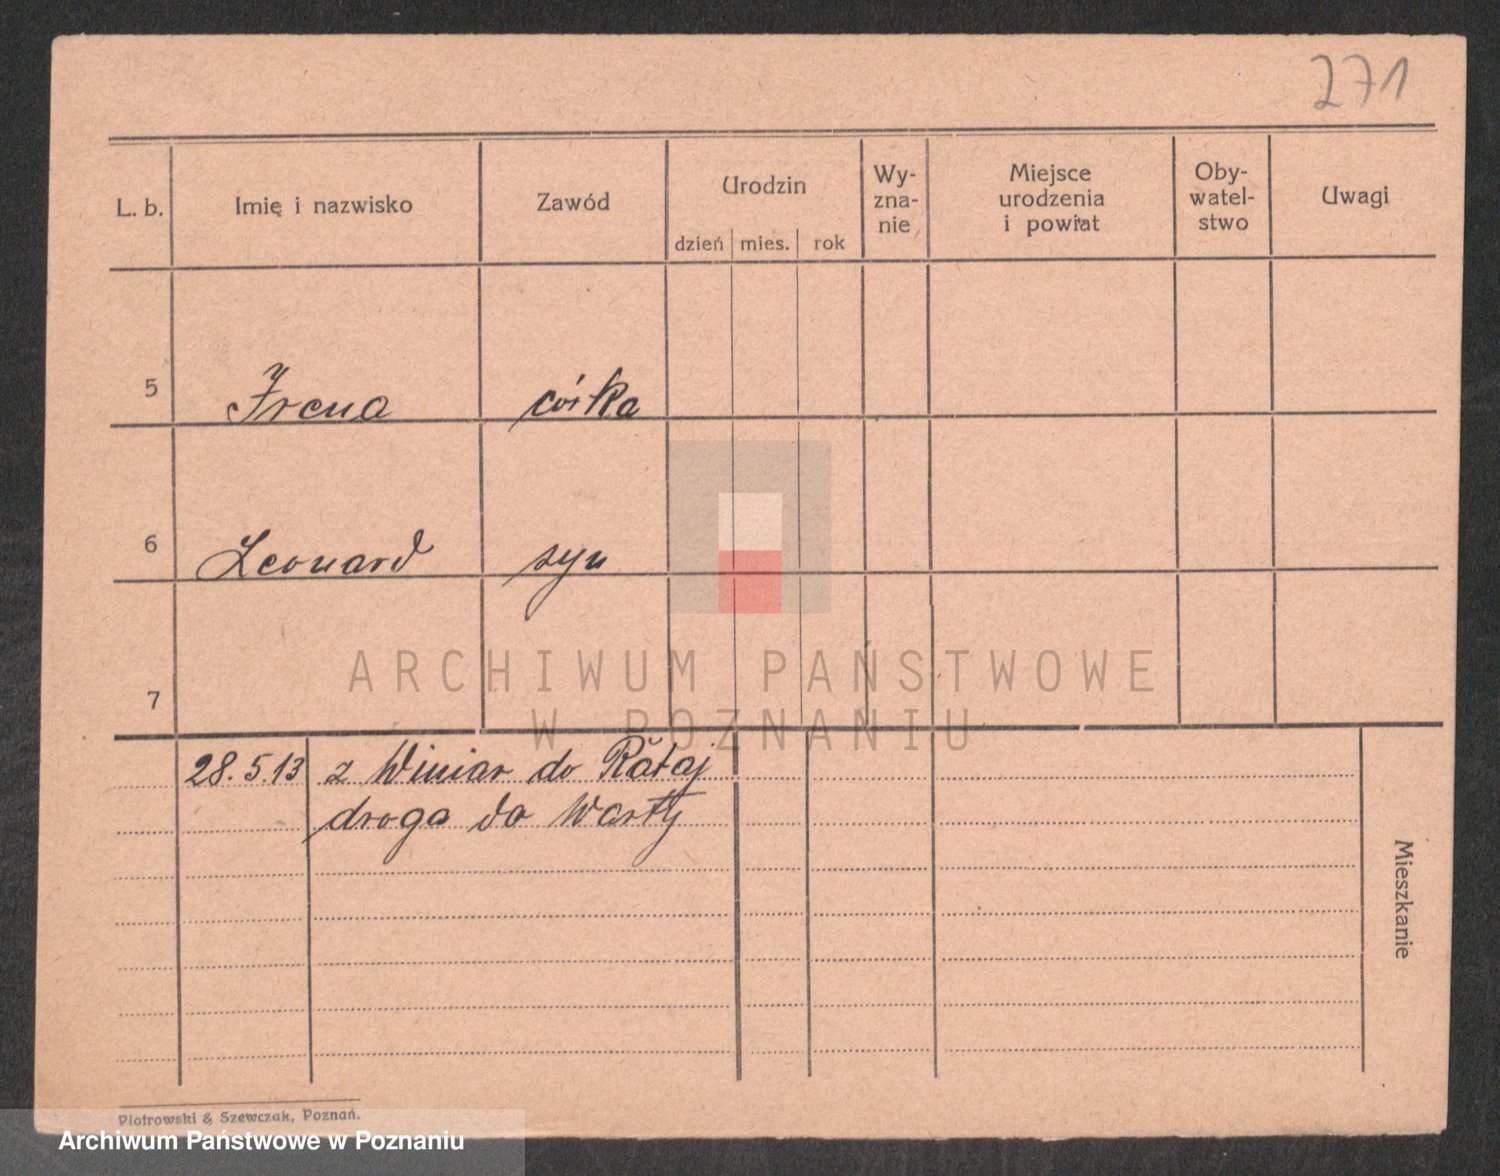 271
L. b. Imię i nazwisko Zawód Urodzin dzień mies. rok Wy-zna-nie Miejsce urodzenia i powiat Oby-watel-stwo Uwagi
5 Irena córka
6 Leonard syn
7
28.5.13 z Winiar do Rataj
droga do Warty
Mieszkanie
Piotrowski & Szewczak, Poznań.
ARCHIWUM PAŃSTWOWE
W POZNANIU
Archiwum Państwowe w Poznaniu